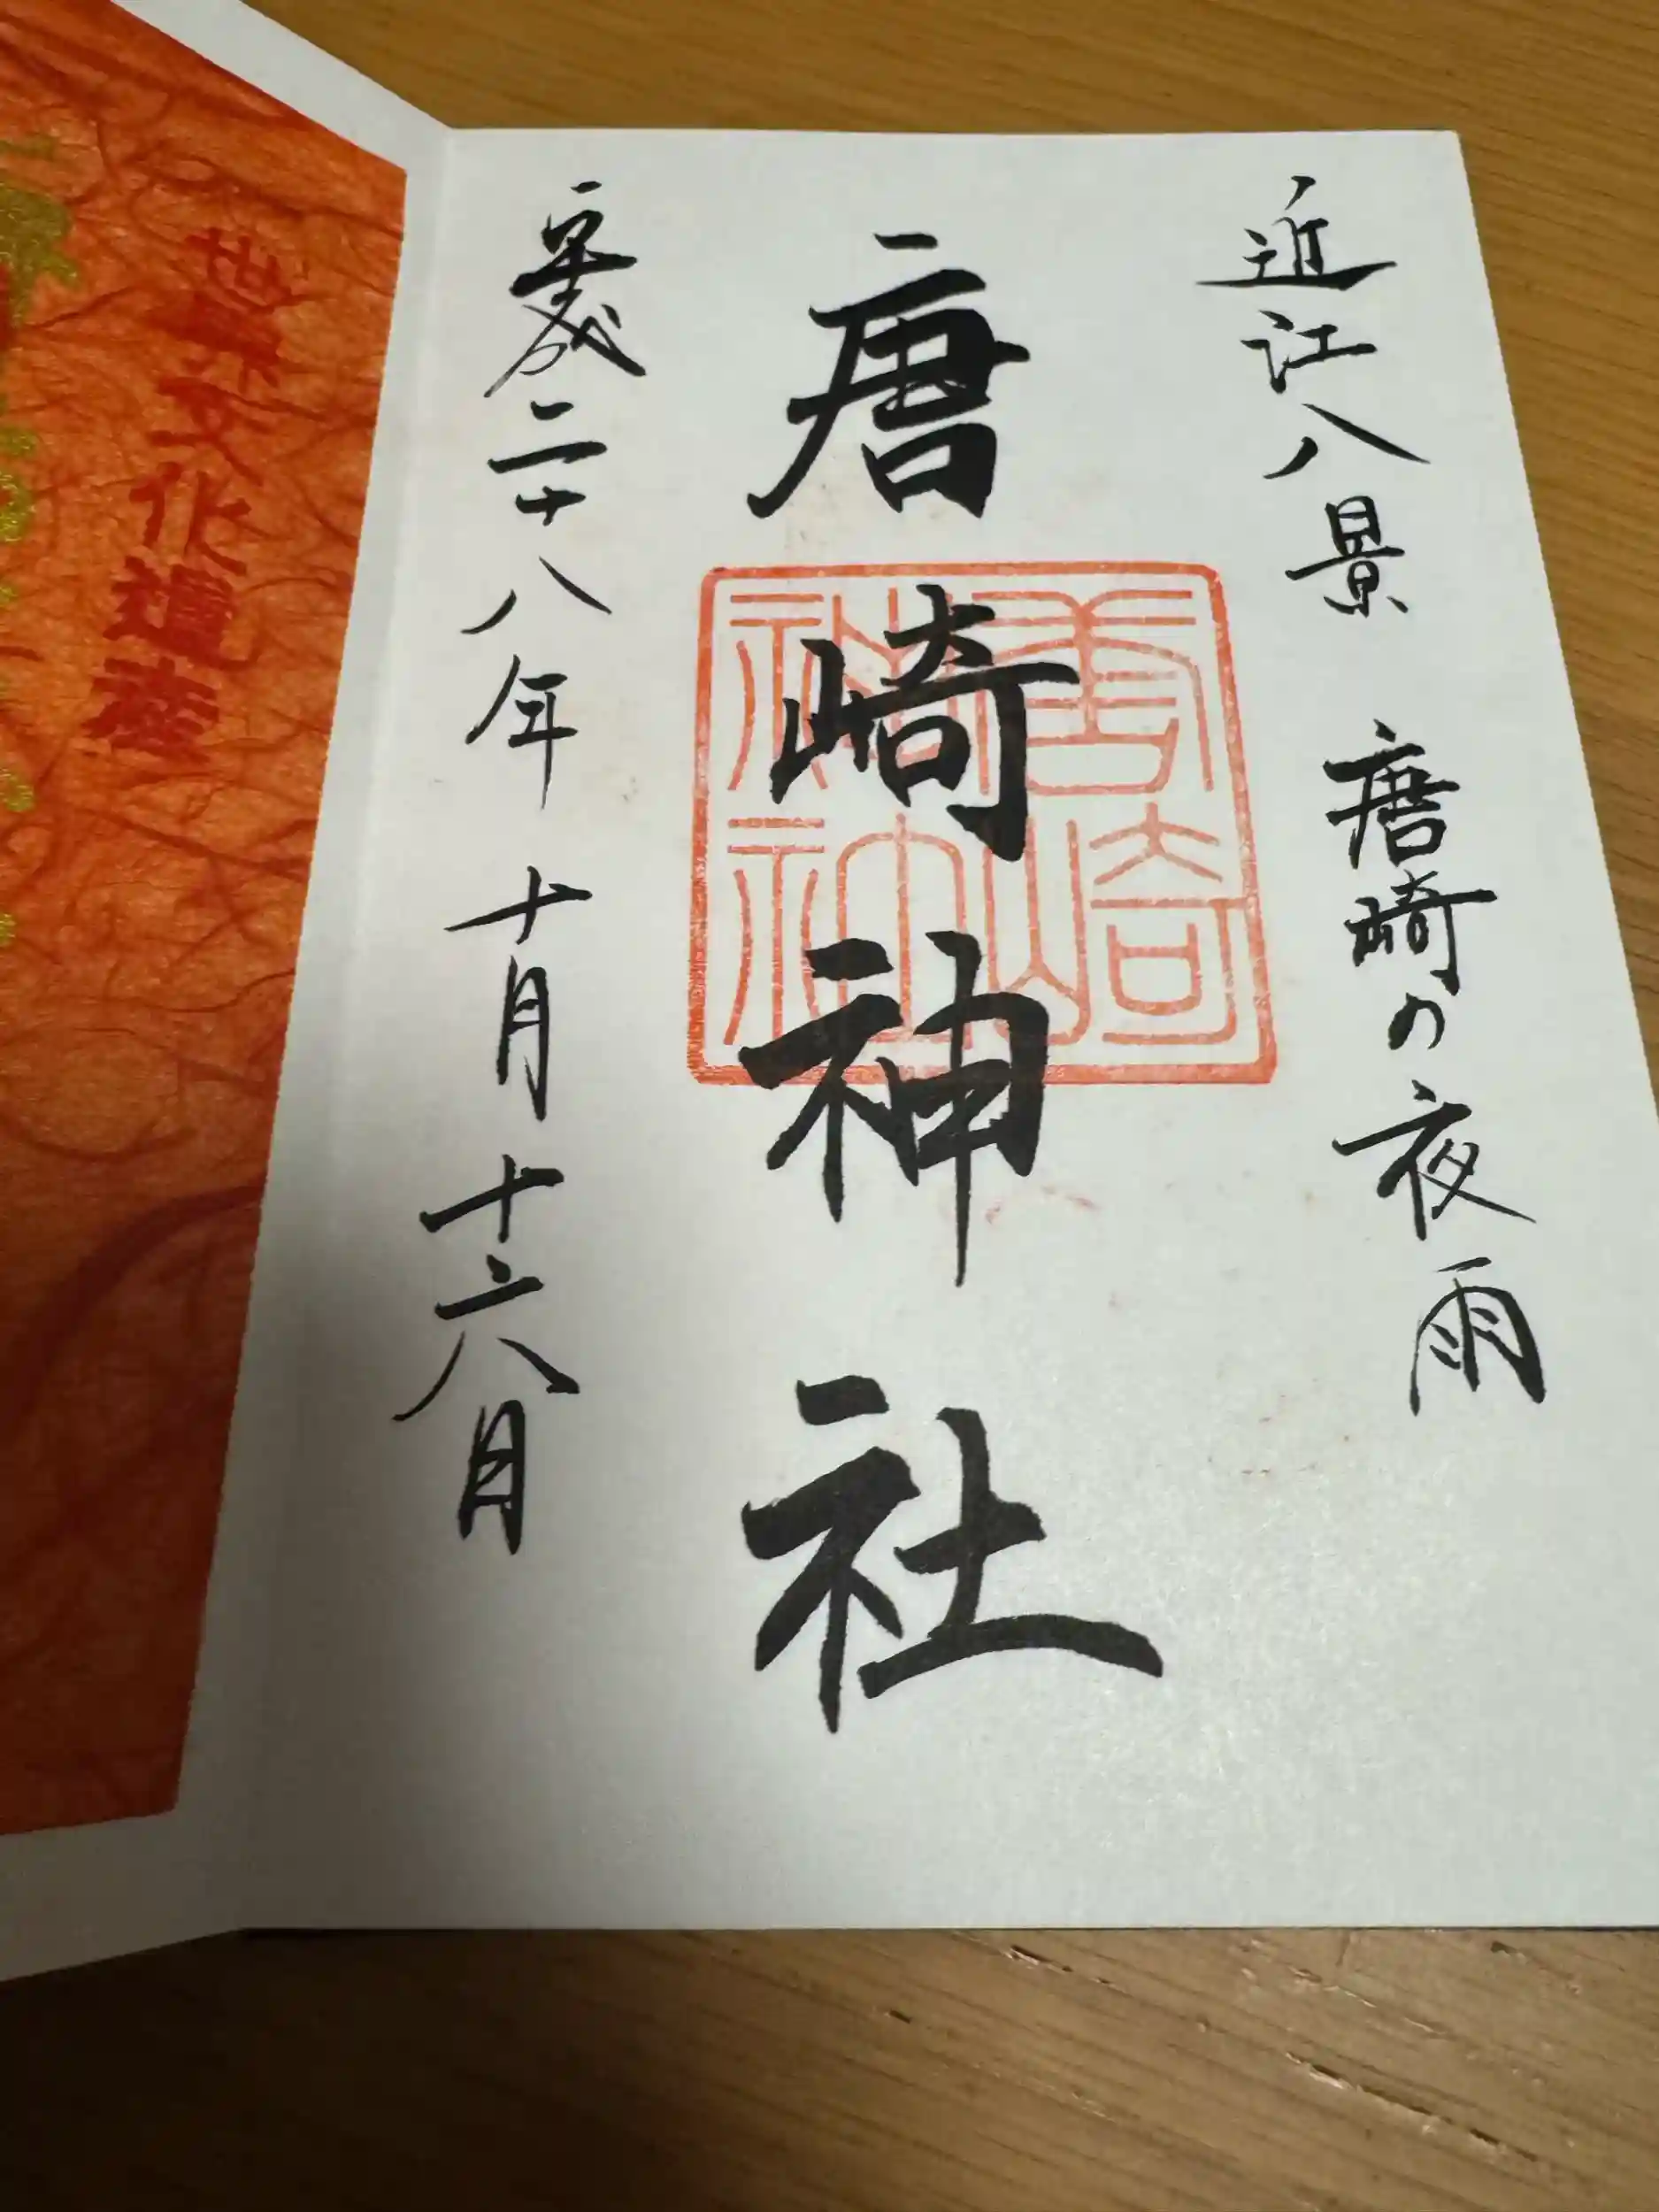 近江八景 唐崎の夜雨
唐崎神社
唐崎
神社
平成二十八年 十月 十六日
世界文化遺産